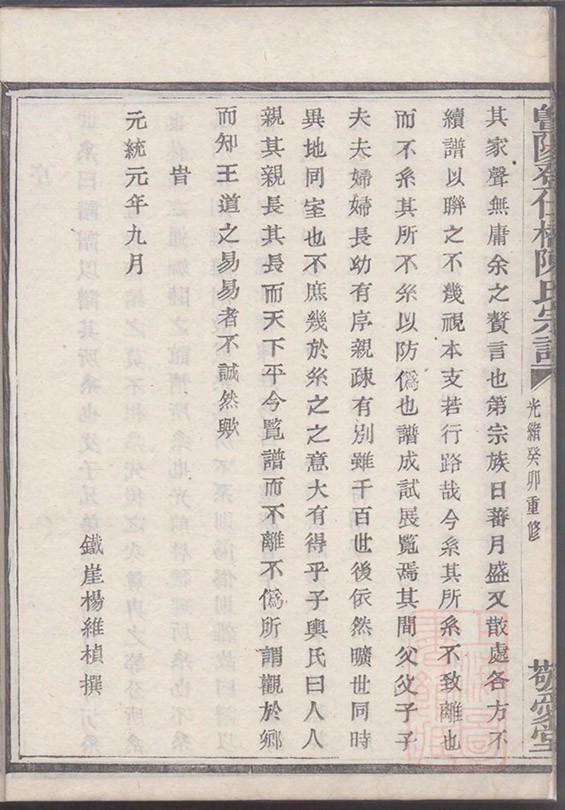 暨陽登仕橋陳氏宗譜
光緒癸卯重修
敬愛堂
其家聲無庸余之贅言也第宗族日蕃月盛又散處各方不
續譜以聯之不幾視本支若行路哉今系其所系不致離也
而不系其所不系以防僞也譜成試展覧焉其間父父子子
夫夫婦婦長幼有序親疎有別雖千百世後依然曠世同時
異地同室也不庶幾於系之之意大有得乎子輿氏曰人人
親其親長其長而天下平今覧譜而不離不僞所謂觀於鄉
而知王道之易易者不誠然歟
旹
元統元年九月
鐵崖楊維楨撰